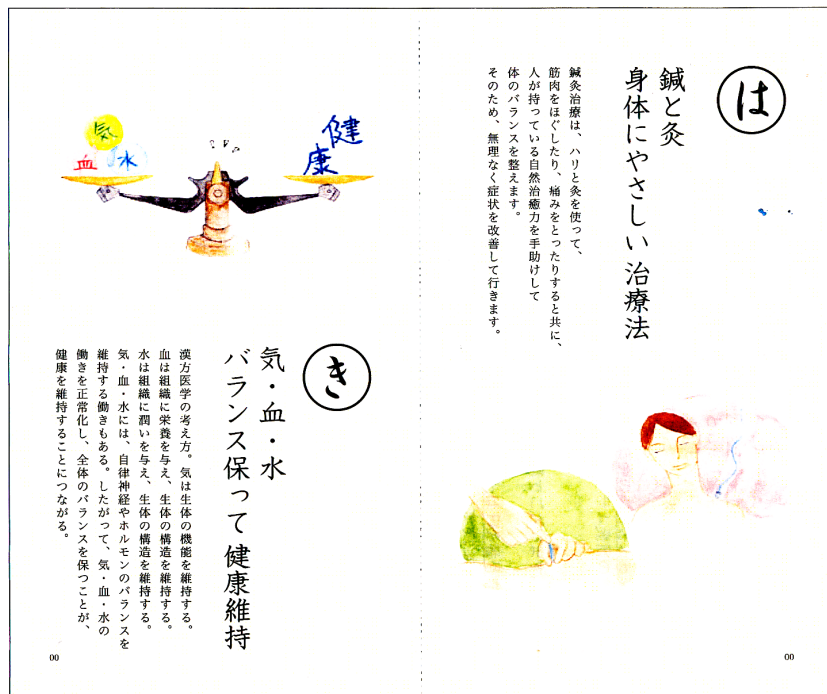 は
鍼と灸
身体にやさしい治療法
鍼灸治療は、ハリと灸を使って、
筋肉をほぐしたり、痛みをとったりすると共に、
人が持っている自然治癒力を手助けして
体のバランスを整えます。
そのため、無理なく症状を改善して行きます。
00
気
血
水
健
康
き
気・血・水
バランス保って健康維持
漢方医学の考え方。気は生体の機能を維持する。
血は組織に栄養を与え、生体の構造を維持する。
水は組織に潤いを与え、生体の構造を維持する。
気・血・水には、自律神経やホルモンのバランスを
維持する働きもある。したがって、気・血・水の
働きを正常化し、全体のバランスを保つことが、
健康を維持することにつながる。
00